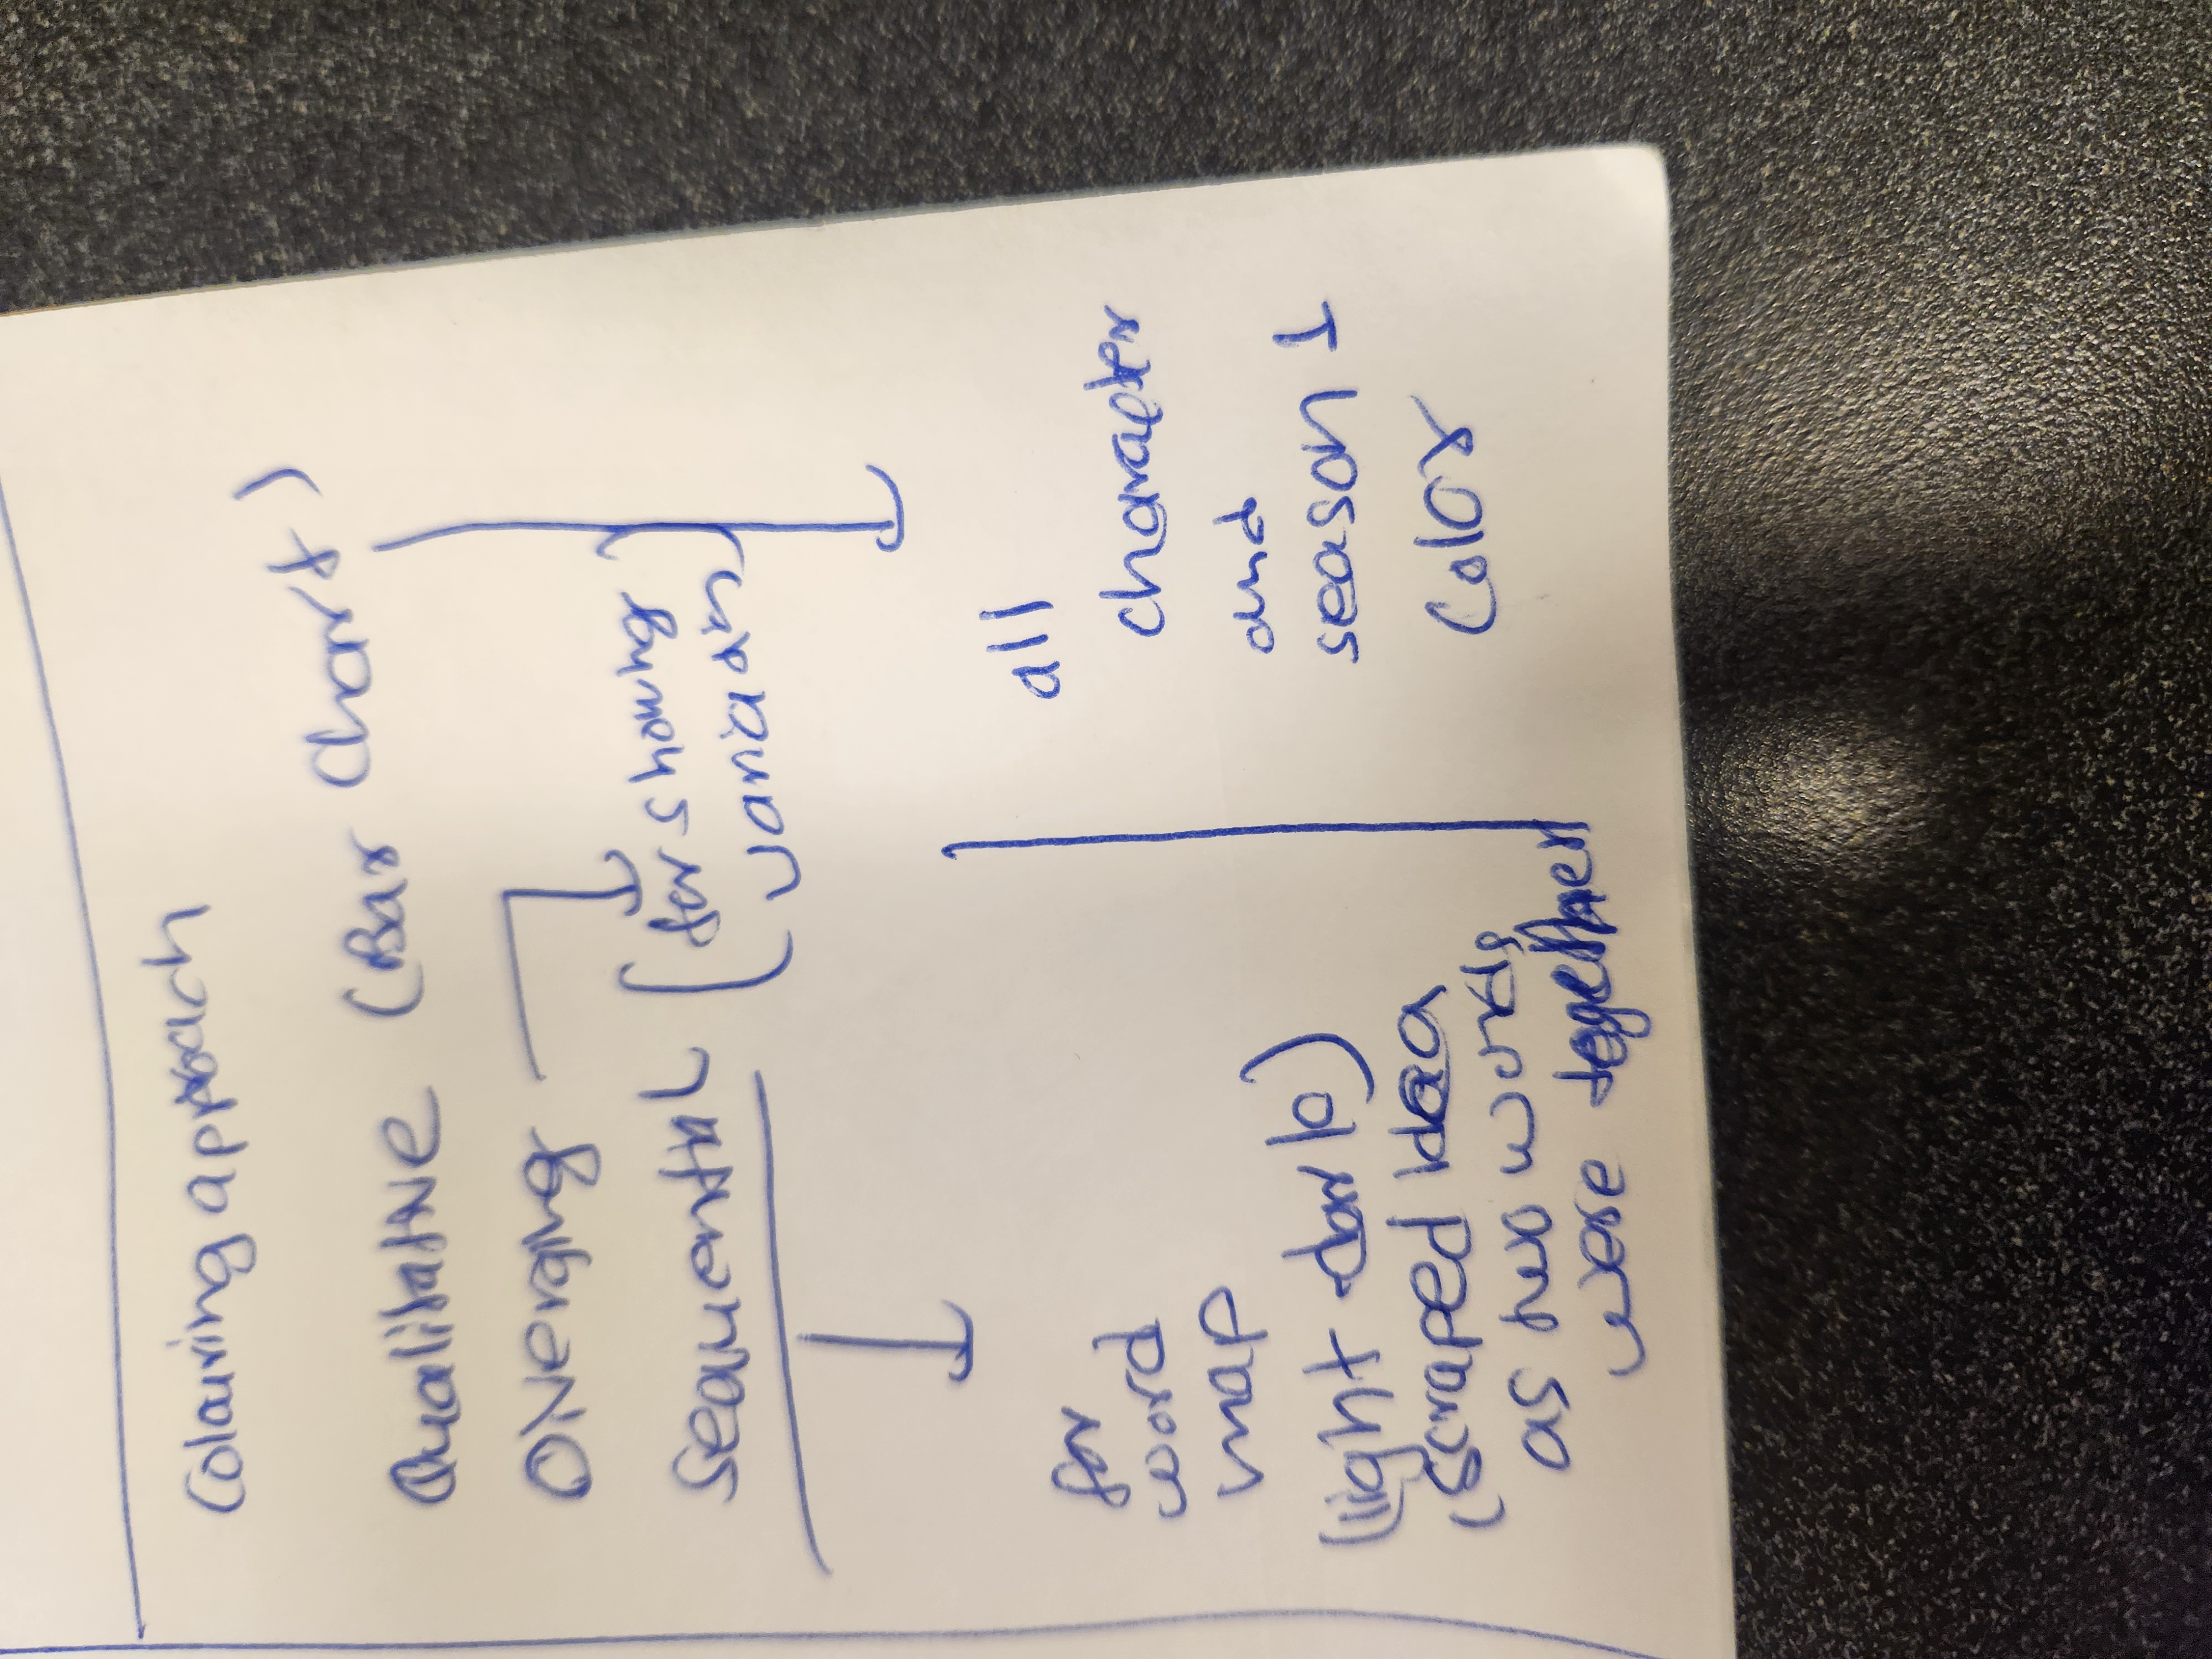 Colouring approach
Qualitative (Bar Chart)
Diverging
sequential (for showing
variation)
for
word
map
(light-dark)
(scraped idea
as two words
were together
all
character
and
season 1
Color